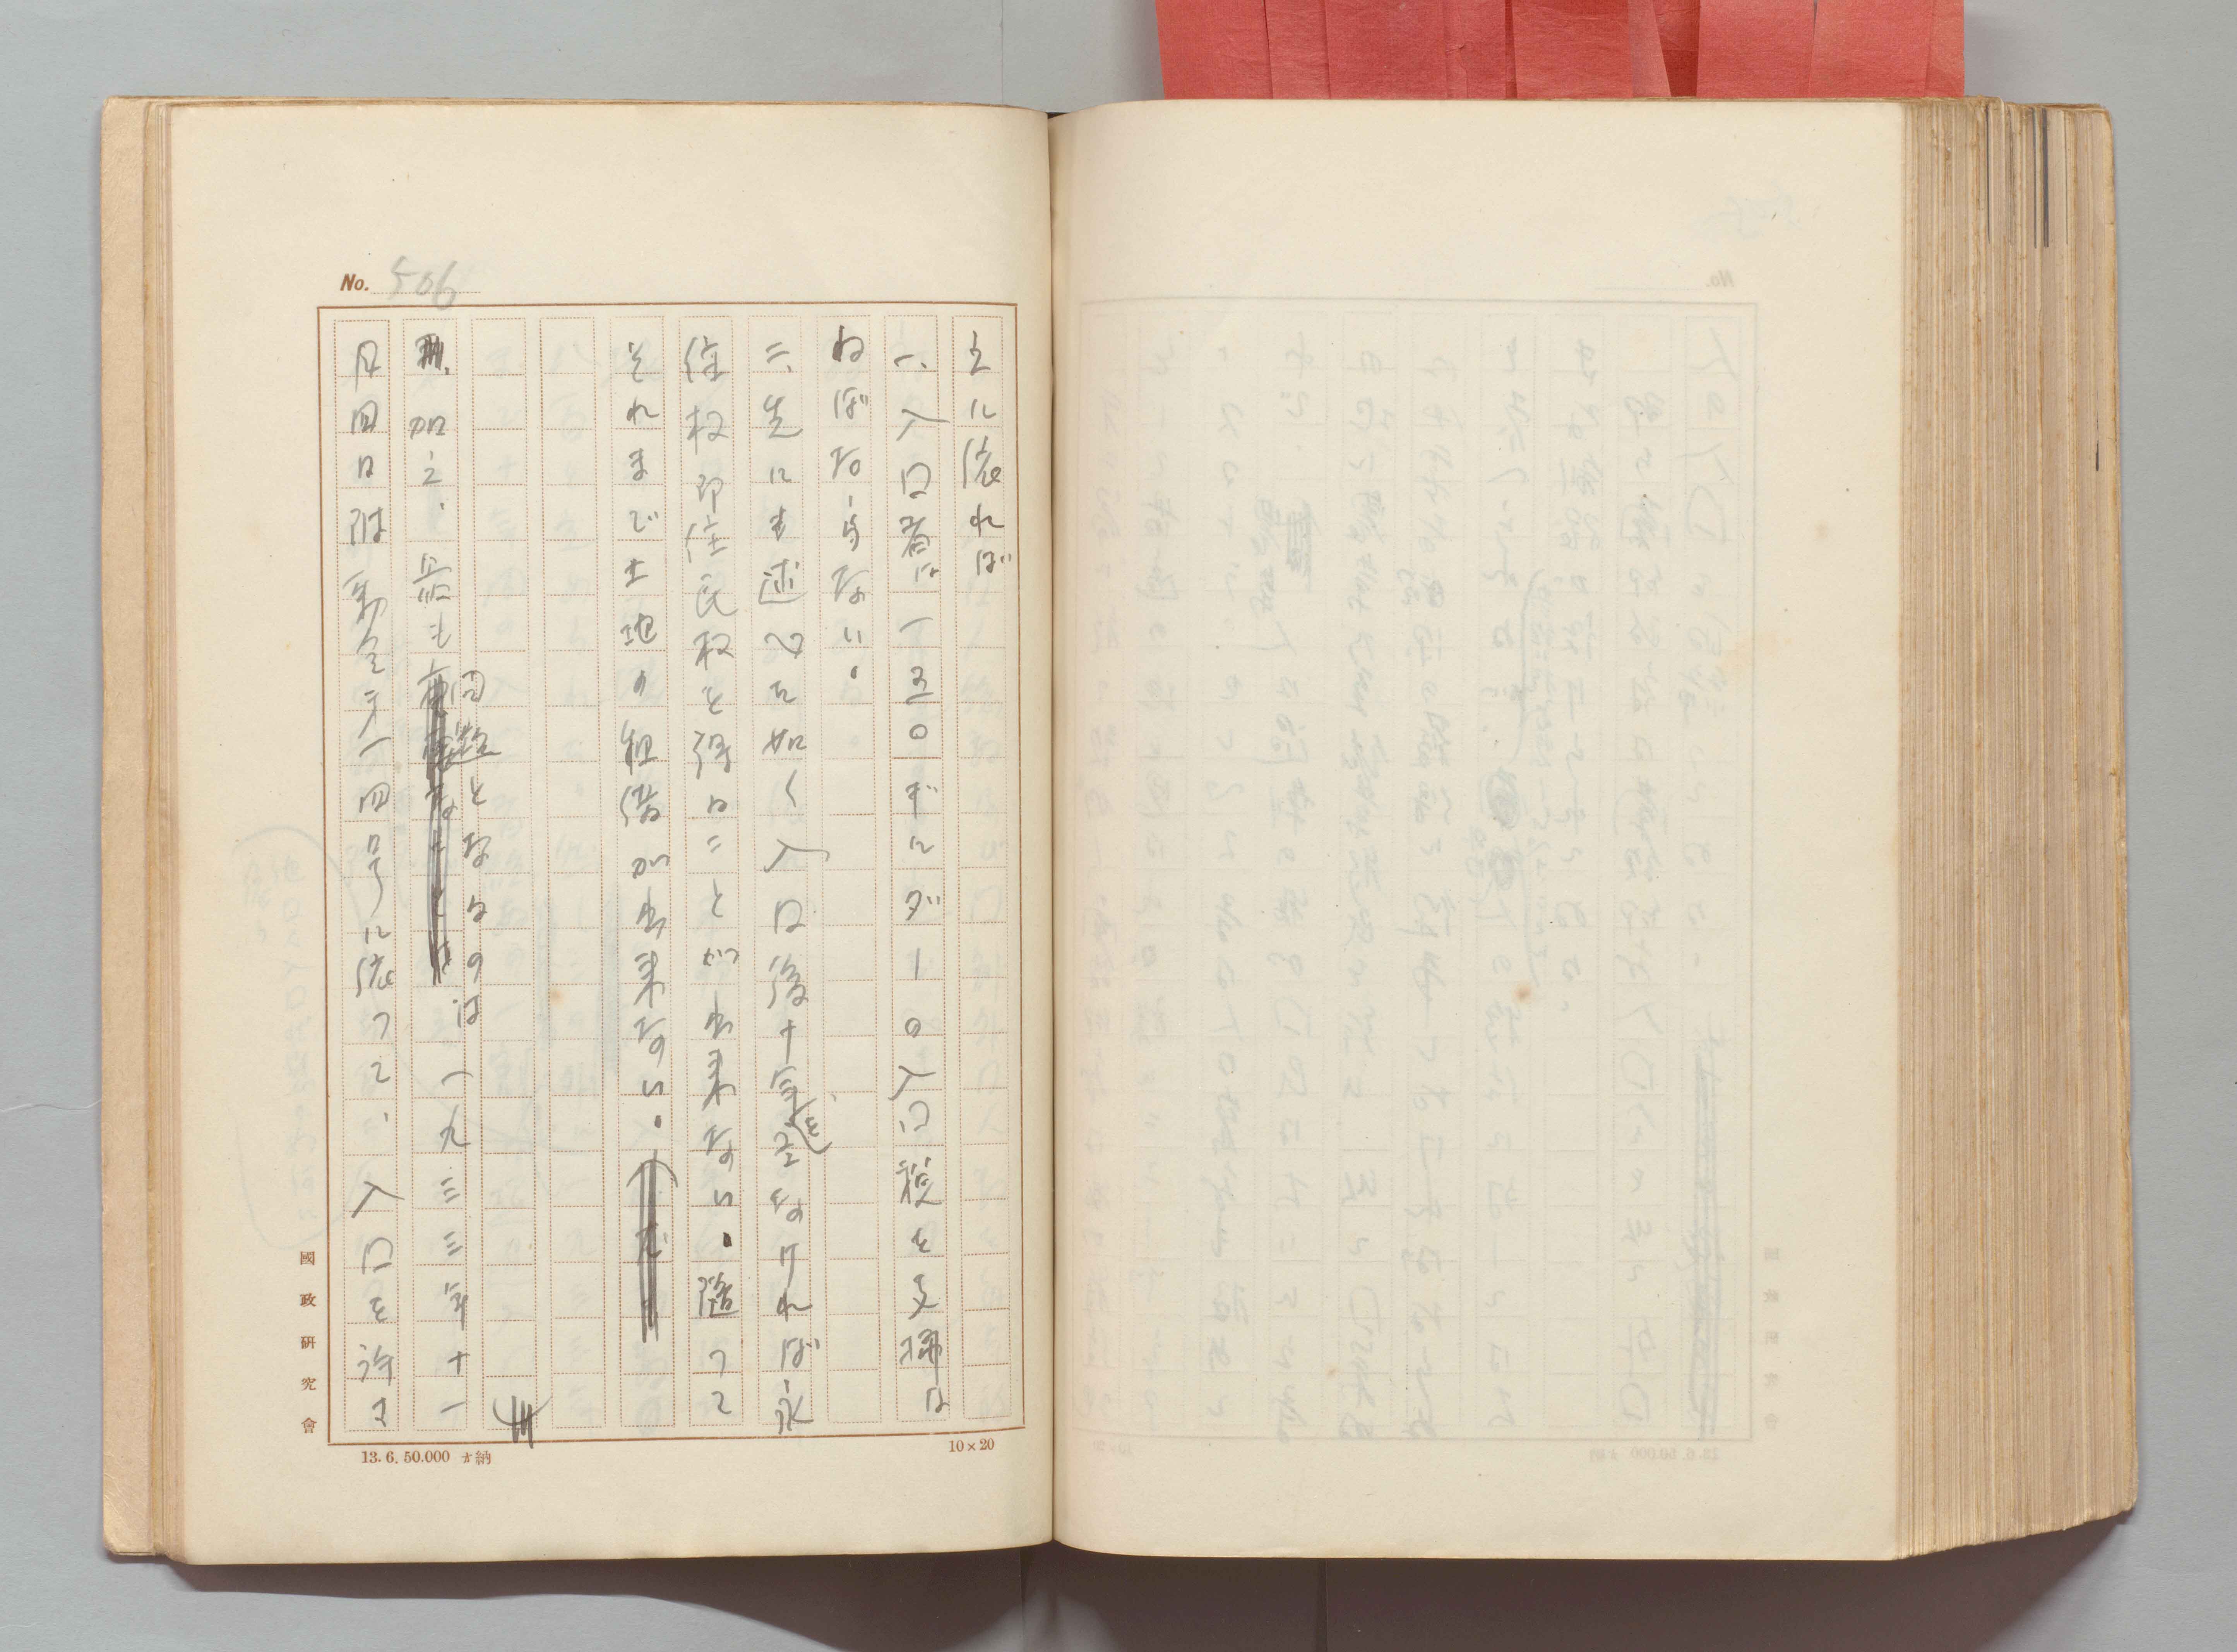 No. 506
之に依れば
一、入国者は一五〇ギルダーの入国税を支拂は
ねばならない。
二、先にも述べた如く入国後十年を経なければ永
住权即住民权を得ることが出来ない。随つて
それまで土地の租借が出来ない。
加之、最も問題となるのは一九三三年十一
月四日附勅令第一四号に依つて、入国を許さ
國政研究會
13. 6. 50.000 ォ納
10×20